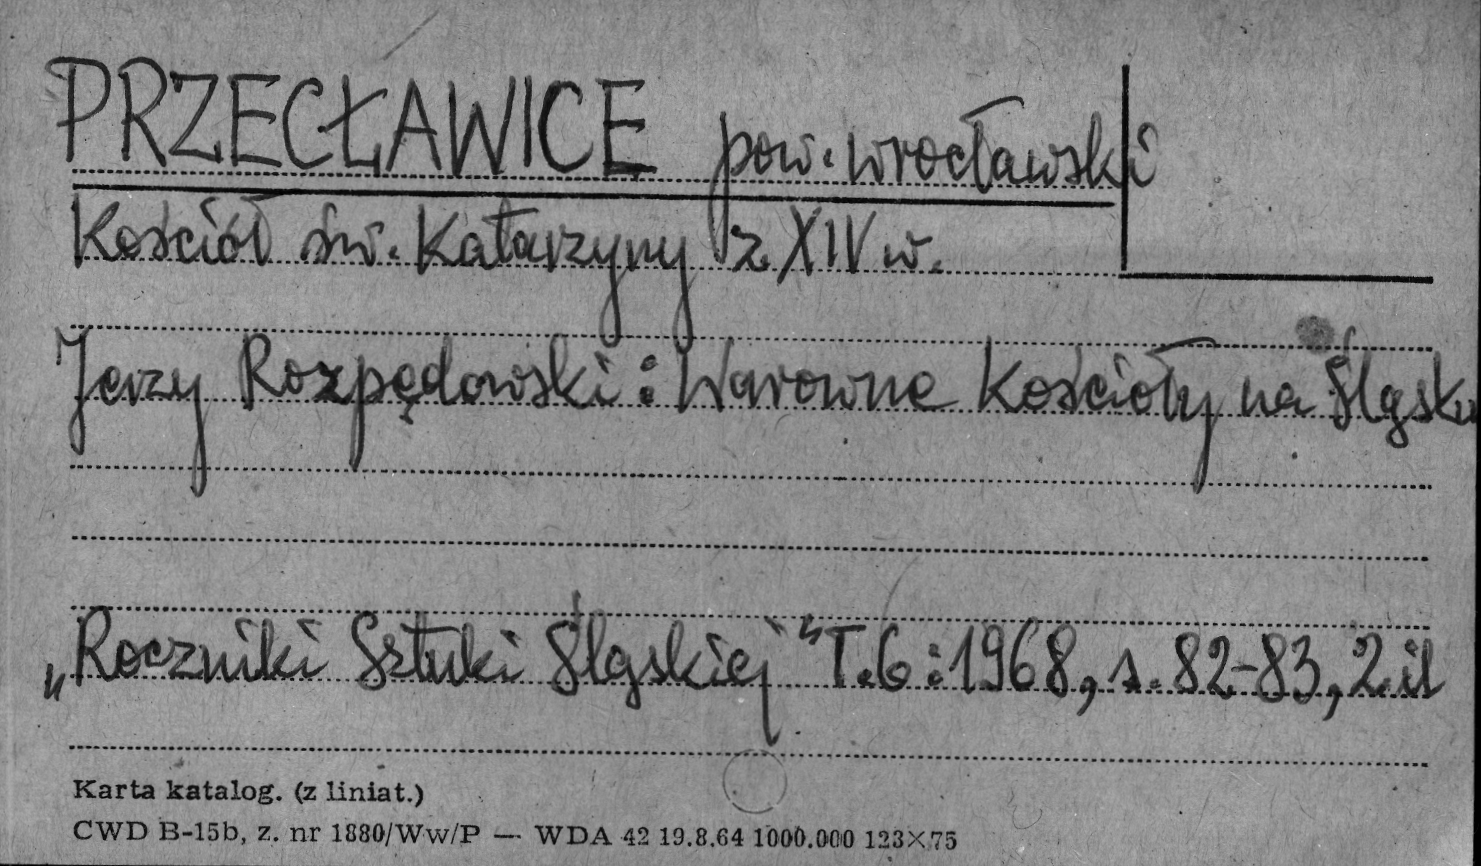 PRZECŁAWICE pow. wrocławski
Kościół św. Katarzyny z XIV w.
Jerzy Rozpędowski: Warowne Kościoły na Śląsku
„Roczniki Sztuki Śląskiej" T.6:1968, s. 82-83, 2 il
Karta katalog. (z liniat.)
CWD B-15b, z. nr 1880/Ww/P — WDA 42 19.8.64 1000.000 123×75